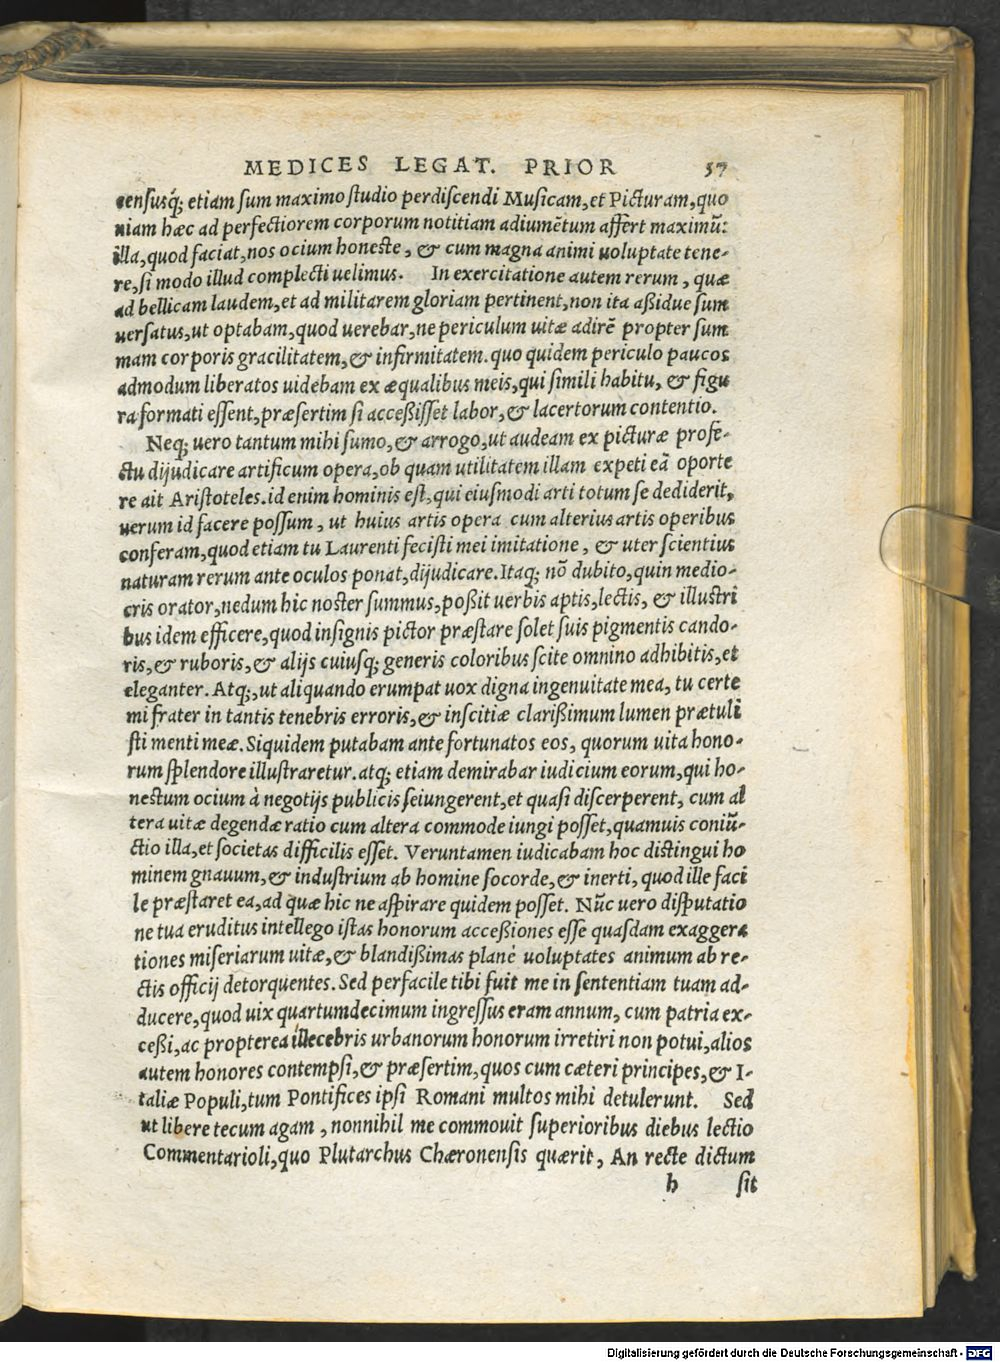 MEDICES LEGAT. PRIOR 57
censusq́; etiam sum maximo studio perdiscendi Musicam, et Picturam, quo
niam hæc ad perfectiorem corporum notitiam adiumẽtum affert maximũ:
illa, quod faciat, nos ocium honeste, & cum magna animi uoluptate tene-
re, si modo illud complecti uelimus. In exercitatione autem rerum, quæ
ad bellicam laudem, et ad militarem gloriam pertinent, non ita aßidue sum
uersatus, ut optabam, quod uerebar, ne periculum uitæ adirẽ propter sum
mam corporis gracilitatem, & infirmitatem. quo quidem periculo paucos
admodum liberatos uidebam ex æqualibus meis, qui simili habitu, & figu
ra formati essent, præsertim si acceßisset labor, & lacertorum contentio.
Neq; uero tantum mihi sumo, & arrogo, ut audeam ex picturæ profe-
ctu dijudicare artificum opera, ob quam utilitatem illam expeti eã oporte
re ait Aristoteles. id enim hominis est, qui eiusmodi arti totum se dediderit,
uerum id facere possum, ut huius artis opera cum alterius artis operibus
conferam, quod etiam tu Laurenti fecisti mei imitatione, & uter scientius
naturam rerum ante oculos ponat, dijudicare. Itaq; nõ dubito, quin medio-
cris orator, nedum hic noster summus, poßit uerbis aptis, lectis, & illustri
bus idem efficere, quod insignis pictor præstare solet suis pigmentis cando-
ris, & ruboris, & alijs cuiusq; generis coloribus scite omnino adhibitis, et
eleganter. Atq;, ut aliquando erumpat uox digna ingenuitate mea, tu certe
mi frater in tantis tenebris erroris, & inscitiæ clarißimum lumen prætuli
sti menti meæ. Siquidem putabam ante fortunatos eos, quorum uita hono-
rum splendore illustraretur. atq; etiam demirabar iudicium eorum, qui ho-
nestum ocium à negotijs publicis seiungerent, et quasi discerperent, cum al
tera uitæ degendæ ratio cum altera commode iungi posset, quamuis coniũ-
ctio illa, et societas difficilis esset. Veruntamen iudicabam hoc distingui ho
minem gnauum, & industrium ab homine socorde, & inerti, quod ille faci
le præstaret ea, ad quæ hic ne aspirare quidem posset. Nũc uero disputatio
ne tua eruditus intellego istas honorum acceßiones esse quasdam exaggera
tiones miseriarum uitæ, & blandißimas planè uoluptates animum ab re-
ctis officij detorquentes. Sed perfacile tibi fuit me in sententiam tuam ad-
ducere, quod uix quartumdecimum ingressus eram annum, cum patria ex-
ceßi, ac propterea illecebris urbanorum honorum irretiri non potui, alios
autem honores contempsi, & præsertim, quos cum cæteri principes, & I-
taliæ Populi, tum Pontifices ipsi Romani multos mihi detulerunt. Sed
ut libere tecum agam, nonnihil me commouit superioribus diebus lectio
Commentarioli, quo Plutarchus Chæronensis quærit, An recte dictum
h sit
Digitalisierung gefördert durch die Deutsche Forschungsgemeinschaft - DFG